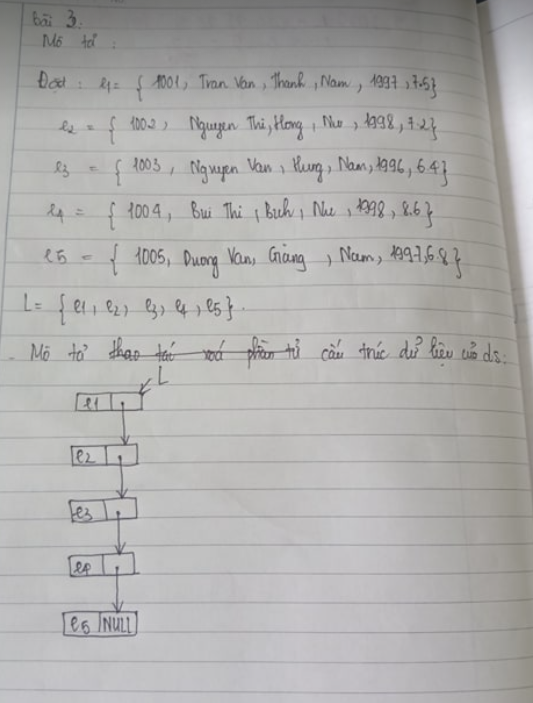 Bài 3.
Mô tả :
Đặt : e1 = { 1001, Tran Van, Thanh, Nam, 1997, 7.5}
e2 = { 1002, Nguyen Thi, Hong, Nu, 1998, 7.2}
e3 = { 1003, Nguyen Van, Hung, Nam, 1996, 6.4}
e4 = { 1004, Bui Thi, Bich, Nu, 1998, 8.6}
e5 = { 1005, Duong Van, Giang, Nam, 1997, 6.8}
L = { e1, e2, e3, e4, e5}.
- Mô tả thao tác xoá phần tử cấu trúc dữ liệu của ds:
L
e1
e2
e3
e4
e5 NULL